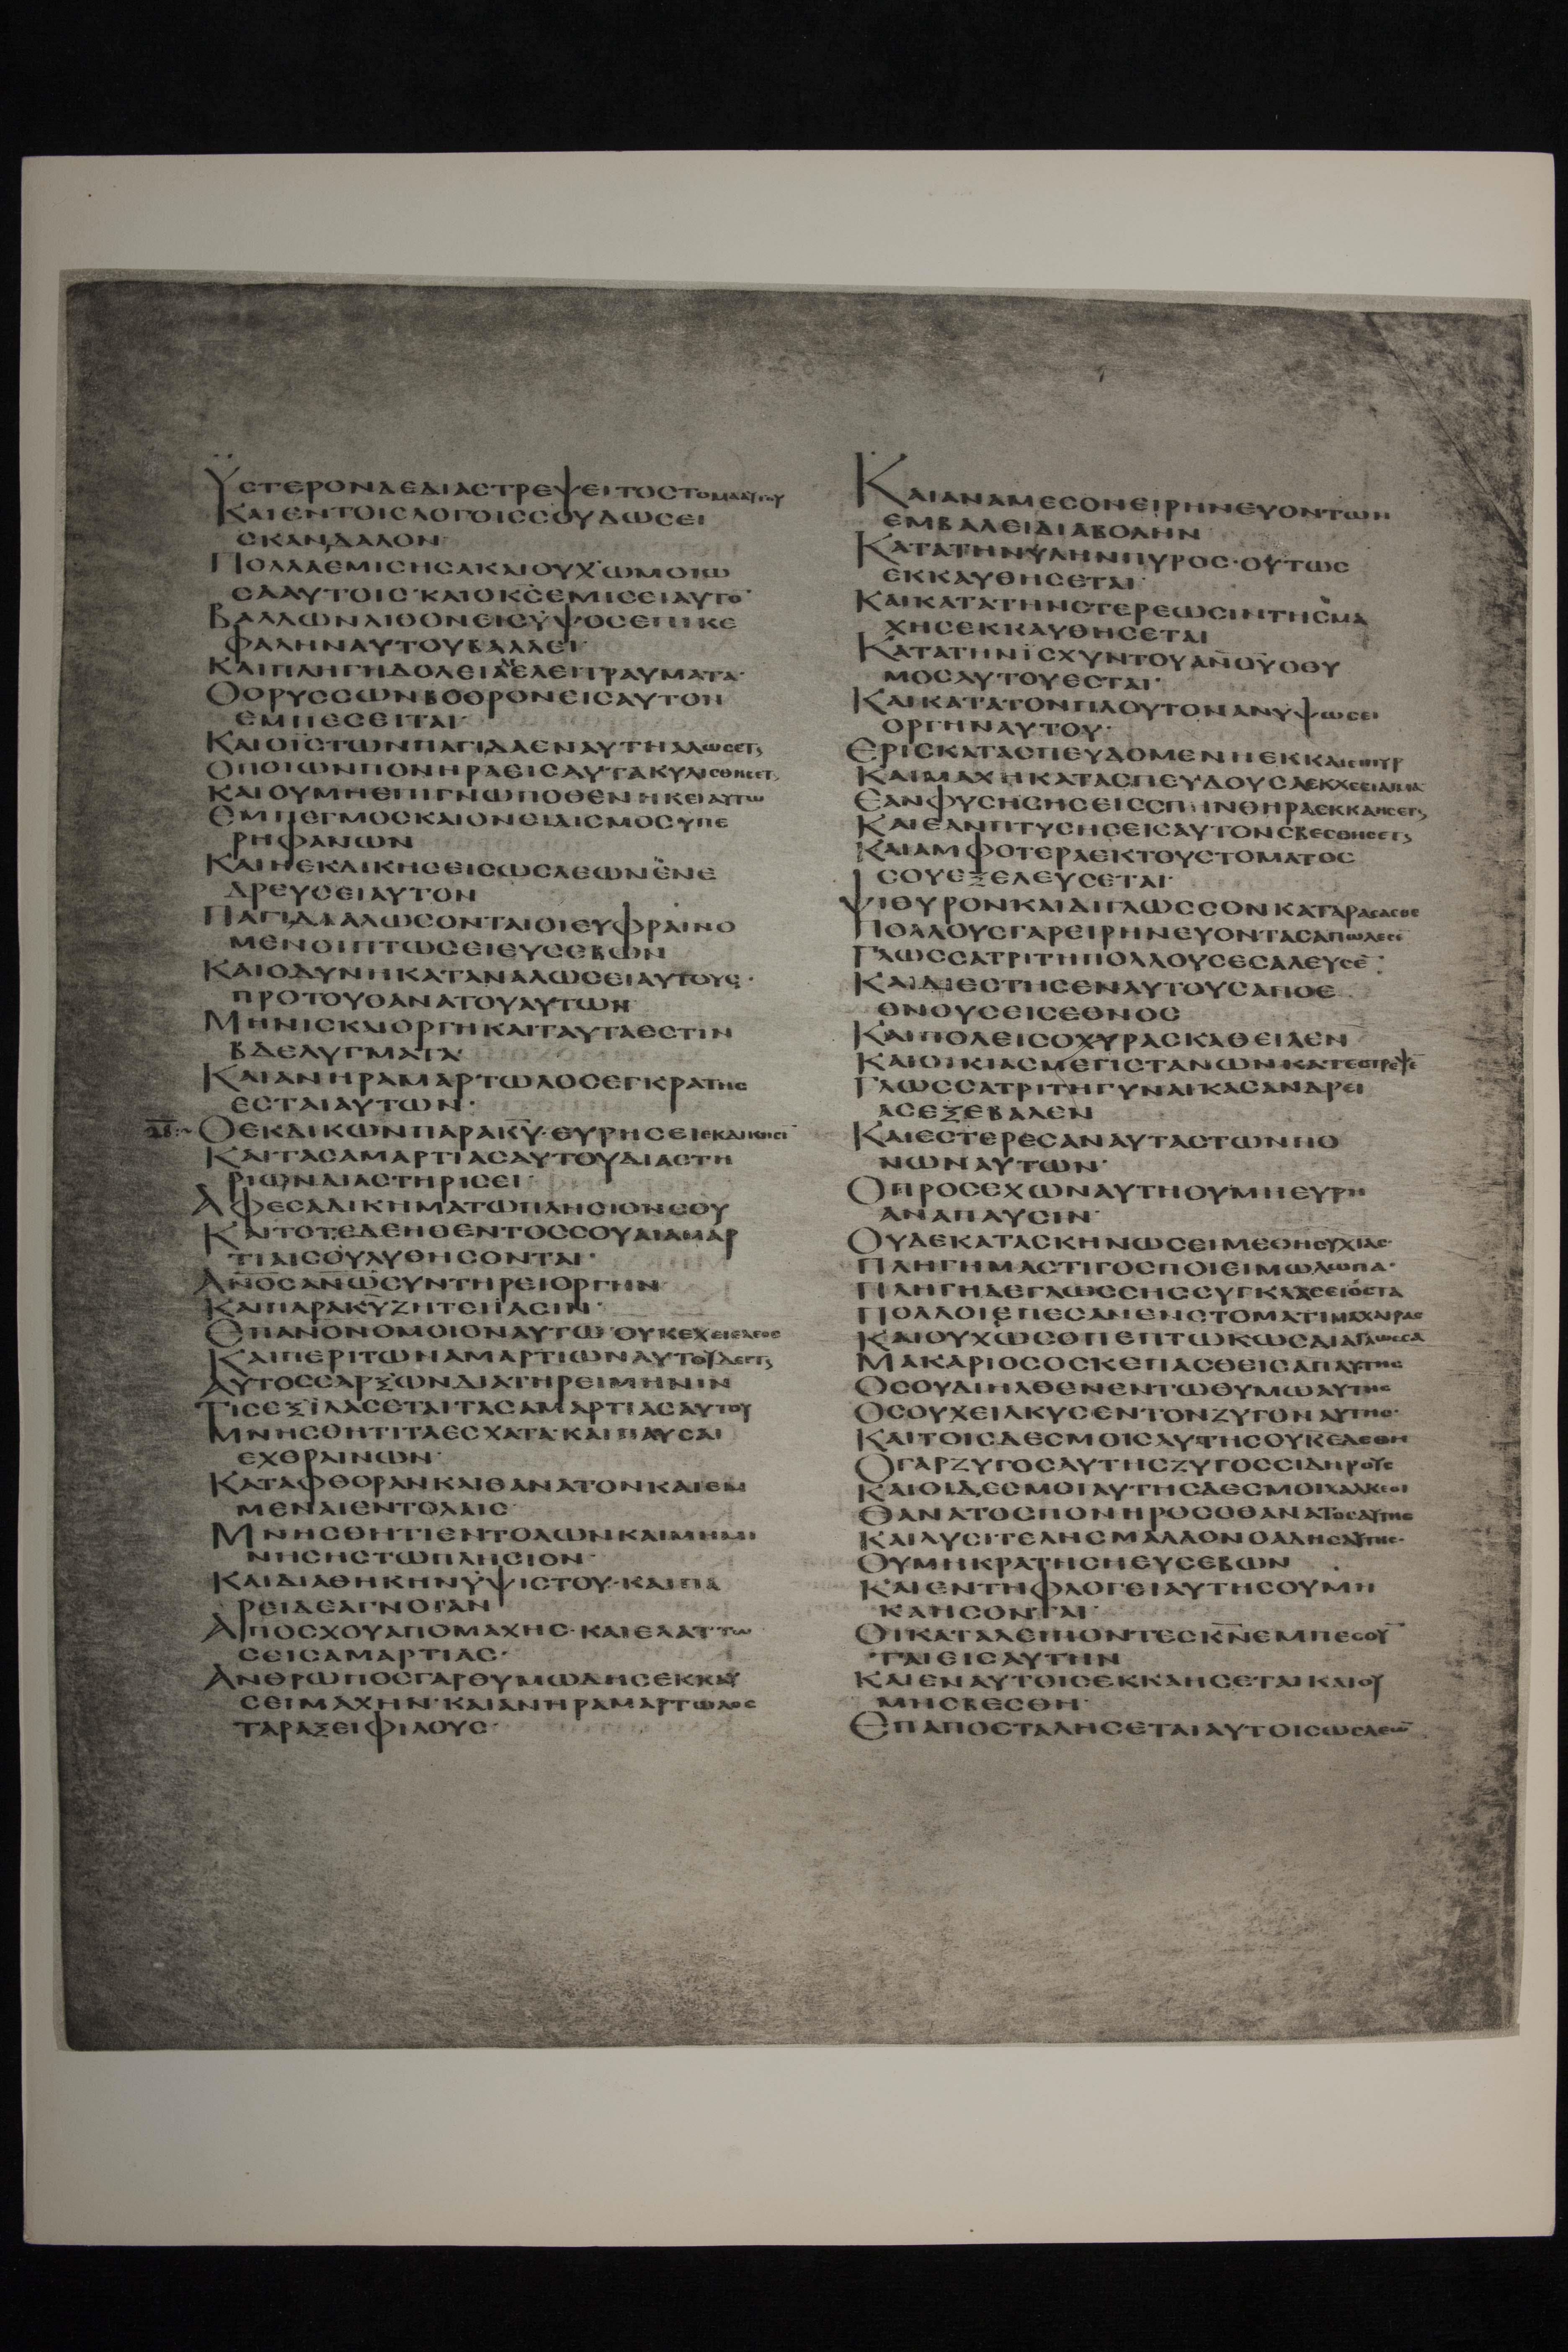 ΫΣΤΕΡΟΝΔΕΔΙΑΣΤΡΕΨΕΙΤΟΣΤΟΜΑΑΥΤΟΥ
ΚΑΙΕΝΤΟΙΣΛΟΓΟΙΣΣΟΥΔΩΣΕΙ
ΣΚΑΝΔΑΛΟΝ·
ΠΟΛΛΑΕΜΙΣΗΣΑΚΑΙΟΥΧΩΜΟΙΩ
ΣΑΑΥΤΟΙΣ·ΚΑΙΟΚΣΕΜΙΣΕΙΑΥΤΟ
ΒΑΛΛΩΝΛΙΘΟΝΕΙΣΥΨΟΣΕΠΙΚΕ
ΦΑΛΗΝΑΥΤΟΥΒΑΛΛΕΙ·
ΚΑΙΠΛΗΓΗΔΟΛΕΙΑΕΛΕΙΤΡΑΥΜΑΤΑ·
ΟΟΡΥΣΣΩΝΒΟΘΡΟΝΕΙΣΑΥΤΟΝ
ΕΜΠΕΣΕΙΤΑΙ·
ΚΑΙΟΪΣΤΩΝΠΑΓΙΔΑΕΝΑΥΤΗΑΛΩΣΕΤ
ΟΠΟΙΩΝΠΟΝΗΡΑΕΙΣΑΥΤΑΚΥΛΙΣΘΗΣΕΤ
ΚΑΙΟΥΜΗΕΠΙΓΝΩΠΟΘΕΝΗΚΕΙΑΥΤΩ
ΕΜΠΕΓΜΟΣΚΑΙΟΝΕΙΔΙΣΜΟΣΥΠΕ
ΡΗΦΑΝΩΝ
ΚΑΙΗΕΚΔΙΚΗΣΕΙΣΩΣΛΕΩΝΕΝΕ
ΔΡΕΥΣΕΙΑΥΤΟΝ
ΠΑΓΙΔΙΑΛΩΣΟΝΤΑΙΟΙΕΥΦΡΑΙΝΟ
ΜΕΝΟΙΠΤΩΣΕΙΕΥΣΕΒΩΝ
ΚΑΙΟΔΥΝΗΚΑΤΑΝΑΛΩΣΕΙΑΥΤΟΥΣ·
ΠΡΟΤΟΥΘΑΝΑΤΟΥΑΥΤΩΝ
ΜΗΝΙΣΚΑΙΟΡΓΗΚΑΙΤΑΥΤΑΕΣΤΙΝ
ΒΔΕΛΥΓΜΑΤΑ
ΚΑΙΑΝΗΡΑΜΑΡΤΩΛΟΣΕΓΚΡΑΤΗΣ
ΕΣΤΑΙΑΥΤΩΝ·
ΟΕΚΔΙΚΩΝΠΑΡΑΚΥ·ΕΥΡΗΣΕΙΕΚΔΙΚΗΣΙ
ΚΑΙΤΑΣΑΜΑΡΤΙΑΣΑΥΤΟΥΔΙΑΣΤΗ
ΡΙΩΝΔΙΑΣΤΗΡΙΣΕΙ·
ΑΦΕΣΑΔΙΚΗΜΑΤΩΠΛΗΣΙΟΝΣΟΥ
ΚΑΙΤΟΤΕΔΕΗΘΕΝΤΟΣΣΟΥΑΙΑΜΑΡ
ΤΙΑΙΣΟΥΛΥΘΗΣΟΝΤΑΙ·
ΑΝΟΣΑΝΩΣΥΝΤΗΡΕΙΟΡΓΗΝ
ΚΑΙΠΑΡΑΚΥΖΗΤΕΙΙΑΣΙΝ·
ΕΠΑΝΟΝΟΜΟΙΟΝΑΥΤΩΟΥΚΕΧΕΙΕΛΕΟΣ
ΚΑΙΠΕΡΙΤΩΝΑΜΑΡΤΙΩΝΑΥΤΟΥΔΕΙΤ
ΑΥΤΟΣΣΑΡΞΩΝΔΙΑΤΗΡΕΙΜΗΝΙΝ
ΤΙΣΕΞΙΛΑΣΕΤΑΙΤΑΣΑΜΑΡΤΙΑΣΑΥΤΟΥ
ΜΝΗΣΘΗΤΙΤΑΕΣΧΑΤΑ·ΚΑΙΠΑΥΣΑΙ
ΕΧΘΡΑΙΝΩΝ·
ΚΑΤΑΦΘΟΡΑΝΚΑΙΘΑΝΑΤΟΝΚΑΙΕΜ
ΜΕΝΑΙΕΝΤΟΛΑΙΣ·
ΜΝΗΣΘΗΤΙΕΝΤΟΛΩΝΚΑΙΜΗΜΙ
ΝΗΣΗΣΤΩΠΛΗΣΙΟΝ·
ΚΑΙΔΙΑΘΗΚΗΝΥΨΙΣΤΟΥ·ΚΑΙΠΑ
ΡΕΙΔΕΑΓΝΟΙΑΝ
ΑΠΟΣΧΟΥΑΠΟΜΑΧΗΣ·ΚΑΙΕΛΑΤΤΩ
ΣΕΙΣΑΜΑΡΤΙΑΣ·
ΑΝΘΡΩΠΟΣΓΑΡΘΥΜΩΔΗΣΕΚΚΑΥ
ΣΕΙΜΑΧΗΝ·ΚΑΙΑΝΗΡΑΜΑΡΤΩΛΟΣ
ΤΑΡΑΞΕΙΦΙΛΟΥΣ·
ΚΑΙΑΝΑΜΕΣΟΝΕΙΡΗΝΕΥΟΝΤΩΝ
ΕΜΒΑΛΕΙΔΙΑΒΟΛΗΝ
ΚΑΤΑΤΗΝΥΛΗΝΠΥΡΟΣ·ΟΥΤΩΣ
ΕΚΚΑΥΘΗΣΕΤΑΙ·
ΚΑΙΚΑΤΑΤΗΝΣΤΕΡΕΩΣΙΝΤΗΣΜΑ
ΧΗΣΕΚΚΑΥΘΗΣΕΤΑΙ
ΚΑΤΑΤΗΝΙΣΧΥΝΤΟΥΑΝΟΥΟΘΥ
ΜΟΣΑΥΤΟΥΕΣΤΑΙ·
ΚΑΙΚΑΤΑΤΟΝΠΛΟΥΤΟΝΑΝΥΨΩΣΕΙ
ΟΡΓΗΝΑΥΤΟΥ·
ΕΡΙΣΚΑΤΑΣΠΕΥΔΟΜΕΝΗΕΚΚΑΙΕΙΠΥΡ
ΚΑΙΜΑΧΗΚΑΤΑΣΠΕΥΔΟΥΣΑΕΚΧΕΕΙΑΙΜΑ
ΕΑΝΦΥΣΗΣΗΣΕΙΣΣΠΙΝΘΗΡΑΕΚΚΑΗΣΕΤ
ΚΑΙΕΑΝΠΤΥΣΗΣΕΙΣΑΥΤΟΝΣΒΕΣΘΗΣΕΤ
ΚΑΙΑΜΦΟΤΕΡΑΕΚΤΟΥΣΤΟΜΑΤΟΣ
ΣΟΥΕΞΕΛΕΥΣΕΤΑΙ·
ΨΙΘΥΡΟΝΚΑΙΔΙΓΛΩΣΣΟΝΚΑΤΑΡΑΣΑΣΘΕ
ΠΟΛΛΟΥΣΓΑΡΕΙΡΗΝΕΥΟΝΤΑΣΑΠΩΛΕΣΕ
ΓΛΩΣΣΑΤΡΙΤΗΠΟΛΛΟΥΣΕΣΑΛΕΥΣΕ
ΚΑΙΔΙΕΣΤΗΣΕΝΑΥΤΟΥΣΑΠΟΕ
ΘΝΟΥΣΕΙΣΕΘΝΟΣ
ΚΑΙΠΟΛΕΙΣΟΧΥΡΑΣΚΑΘΕΙΛΕΝ
ΚΑΙΟΙΚΙΑΣΜΕΓΙΣΤΑΝΩΝΚΑΤΕΣΤΡΕΨΕ
ΓΛΩΣΣΑΤΡΙΤΗΓΥΝΑΙΚΑΣΑΝΔΡΕΙ
ΑΣΕΞΕΒΑΛΕΝ
ΚΑΙΕΣΤΕΡΕΣΑΝΑΥΤΑΣΤΩΝΠΟ
ΝΩΝΑΥΤΩΝ·
ΟΠΡΟΣΕΧΩΝΑΥΤΗΟΥΜΗΕΥΡΗ
ΑΝΑΠΑΥΣΙΝ·
ΟΥΔΕΚΑΤΑΣΚΗΝΩΣΕΙΜΕΘΗΣΥΧΙΑΣ·
ΠΛΗΓΗΜΑΣΤΙΓΟΣΠΟΙΕΙΜΩΛΩΠΑ·
ΠΛΗΓΗΔΕΓΛΩΣΣΗΣΣΥΓΚΛΑΣΕΙΟΣΤΑ
ΠΟΛΛΟΙΕΠΕΣΑΝΕΝΣΤΟΜΑΤΙΜΑΧΑΙΡΑΣ
ΚΑΙΟΥΧΩΣΟΙΠΕΠΤΩΚΩΣΔΙΑΓΛΩΣΣΑ
ΜΑΚΑΡΙΟΣΟΣΚΕΠΑΣΘΕΙΣΑΠΑΥΤΗΣ
ΟΣΟΥΔΙΗΛΘΕΝΕΝΤΩΘΥΜΩΑΥΤΗΣ
ΟΣΟΥΧΕΙΛΚΥΣΕΝΤΟΝΖΥΓΟΝΑΥΤΗΣ·
ΚΑΙΤΟΙΣΔΕΣΜΟΙΣΑΥΤΗΣΟΥΚΕΔΕΘΗ
ΟΓΑΡΖΥΓΟΣΑΥΤΗΣΖΥΓΟΣΣΙΔΗΡΟΥΣ
ΚΑΙΟΙΔΕΣΜΟΙΑΥΤΗΣΔΕΣΜΟΙΧΑΛΚΕΟΙ
ΘΑΝΑΤΟΣΠΟΝΗΡΟΣΟΘΑΝΑΤΟΣΑΥΤΗΣ
ΚΑΙΛΥΣΙΤΕΛΗΣΜΑΛΛΟΝΟΑΔΗΣΑΥΤΗΣ·
ΟΥΜΗΚΡΑΤΗΣΗΕΥΣΕΒΩΝ
ΚΑΙΕΝΤΗΦΛΟΓΕΙΑΥΤΗΣΟΥΜΗ
ΚΑΗΣΟΝΤΑΙ·
ΟΙΚΑΤΑΛΕΙΠΟΝΤΕΣΚΝΕΜΠΕΣΟΥ
ΤΑΙΕΙΣΑΥΤΗΝ
ΚΑΙΕΝΑΥΤΟΙΣΕΚΚΑΗΣΕΤΑΙΚΑΙΟΥ
ΜΗΣΒΕΣΘΗ·
ΕΠΑΠΟΣΤΑΛΗΣΕΤΑΙΑΥΤΟΙΣΩΣΛΕΩ